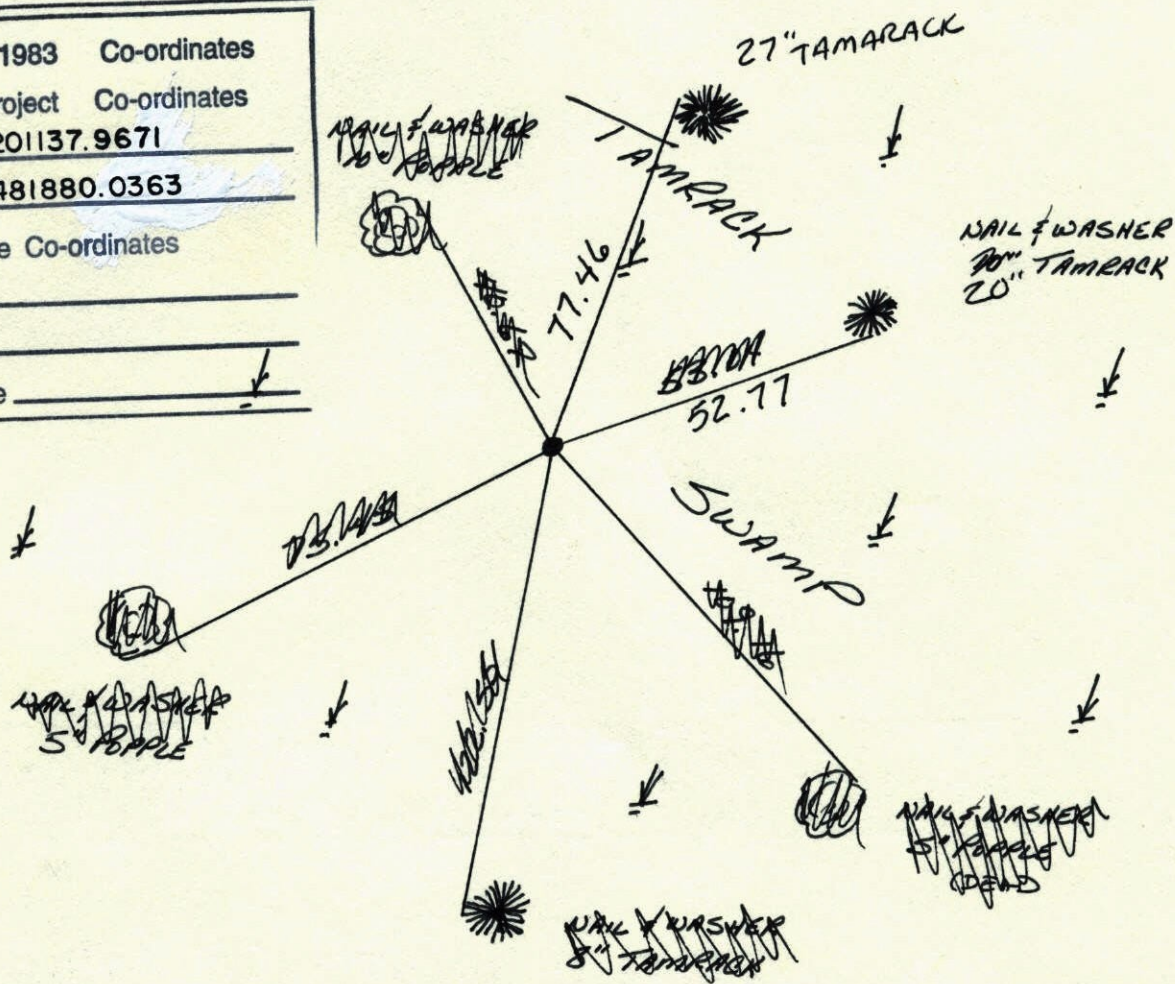 1983 Co-ordinates
roject Co-ordinates
201137.9671
481880.0363
e Co-ordinates
e
27" TAMARACK
NAIL & WASHER
POPPLE
TAMRACK
77.46
NAIL & WASHER
20" TAMRACK
52.77
SWAMP
NAIL & WASHER
5" POPPLE
NAIL & WASHER
5" POPPLE
(DEAD
NAIL & WASHER
8" TAMARACK